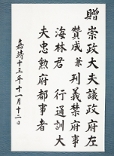 贈
崇政大夫議政府左
贊成兼判義禁府事
海林君行通訓大
夫忠勲府都事者
嘉靖十三年十一月十二日